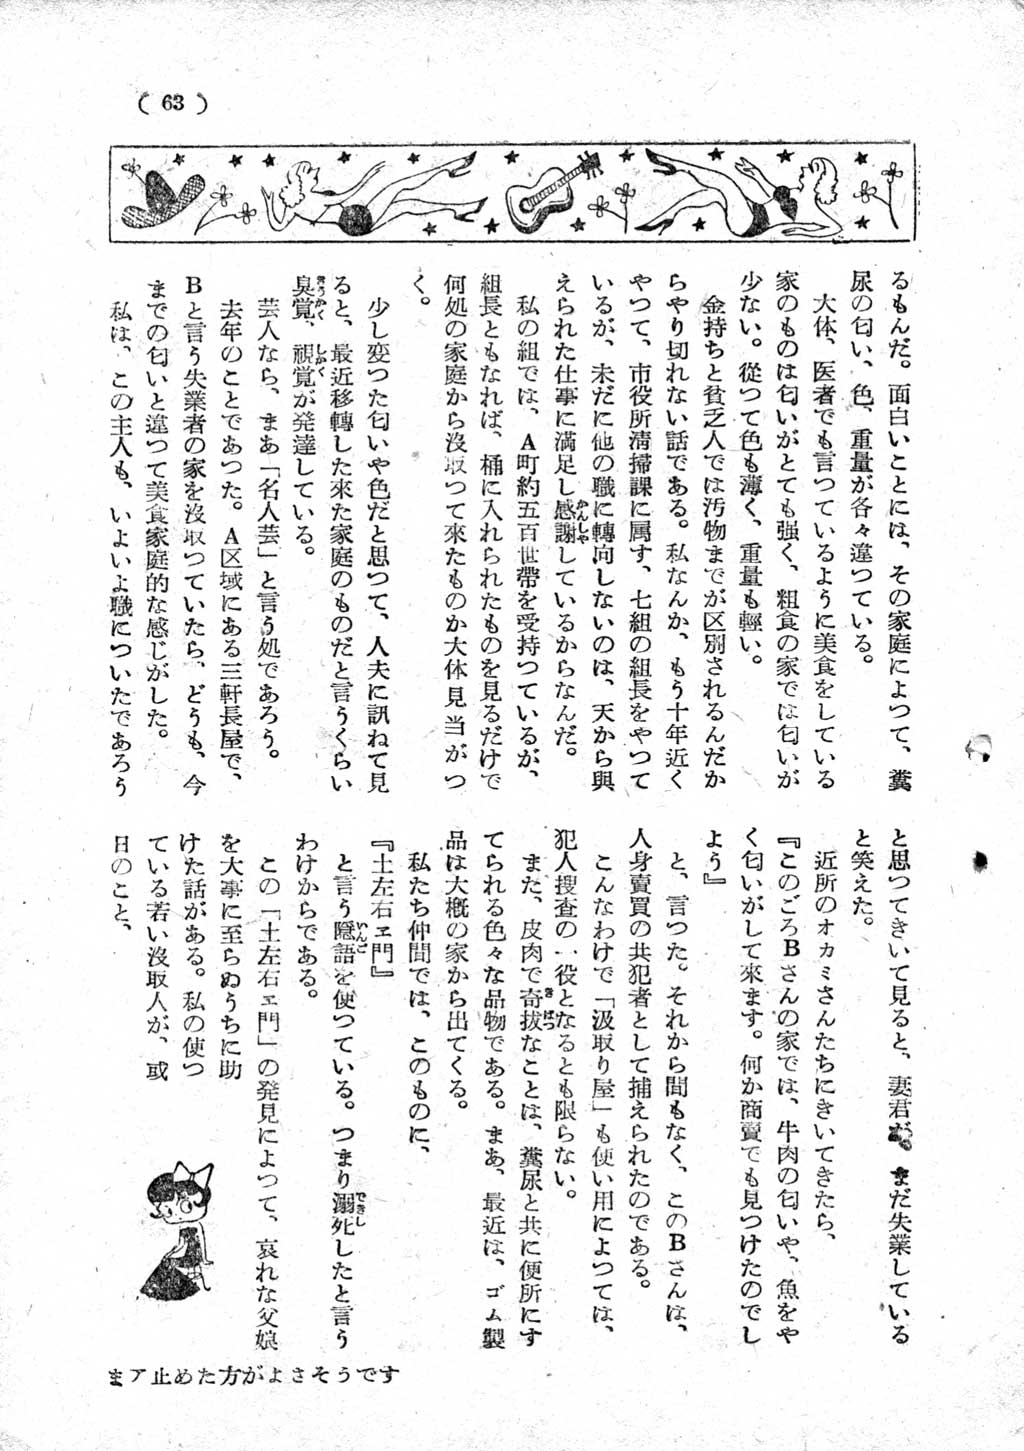 ( 63 )
るもんだ。面白いことには、その家庭によつて、糞
尿の匂い、色、重量が各々違つている。
大体、医者でも言つているように美食をしている
家のものは匂いがとても強く、粗食の家では匂いが
少ない。從つて色も薄く、重量も輕い。
金持ちと貧乏人では汚物までが区別されるんだか
らやり切れない話である。私なんか、もう十年近く
やつて、市役所淸掃課に属す、七組の組長をやつて
いるが、未だに他の職に轉向しないのは、天から與
えられた仕事に満足し感謝かんしやしているからなんだ。
私の組では、A町約五百世帶を受持つているが、
組長ともなれば、桶に入れられたものを見るだけで
何処の家庭から沒取つて來たものか大体見当がつ
く。
少し変つた匂いや色だと思つて、人夫に訊ねて見
ると、最近移轉した来た家庭のものだと言うくらい
臭覚きうかく、視覚しかくが発達している。
芸人なら、まあ「名人芸」と言う処であろう。
去年のことであつた。A区域にある三軒長屋で、
Bと言う失業者の家を沒取つていたら、どうも、今
までの匂いと違つて美食家庭的な感じがした。
私は、この主人も、いよいよ職についたであろう
と思つてきいて見ると、妻君が、まだ失業している
と笑えた。
近所のオカミさんたちにきいてきたら、
『このごろBさんの家では、牛肉の匂いや、魚をや
く匂いがして来ます。何か商賣でも見つけたのでし
よう』
と、言つた。それから間もなく、このBさんは、
人身賣買の共犯者として捕えられたのである。
こんなわけで「汲取り屋」も使い用によつては、
犯人捜査の一役となるとも限らない。
また、皮肉で奇拔きばつなことは、糞尿と共に便所にす
てられる色々な品物である。まあ、最近は、ゴム製
品は大槪の家から出てくる。
私たち仲間では、このものに、
『土左右ヱ門』
と言う隠語いんごを使つている。つまり溺死できししたと言う
わけからである。
この「土左右ヱ門」の発見によつて、哀れな父娘
を大事に至らぬうちに助
けた話がある。私の使つ
ている若い沒取人が、或
日のこと、
まア止めた方がよさそうです